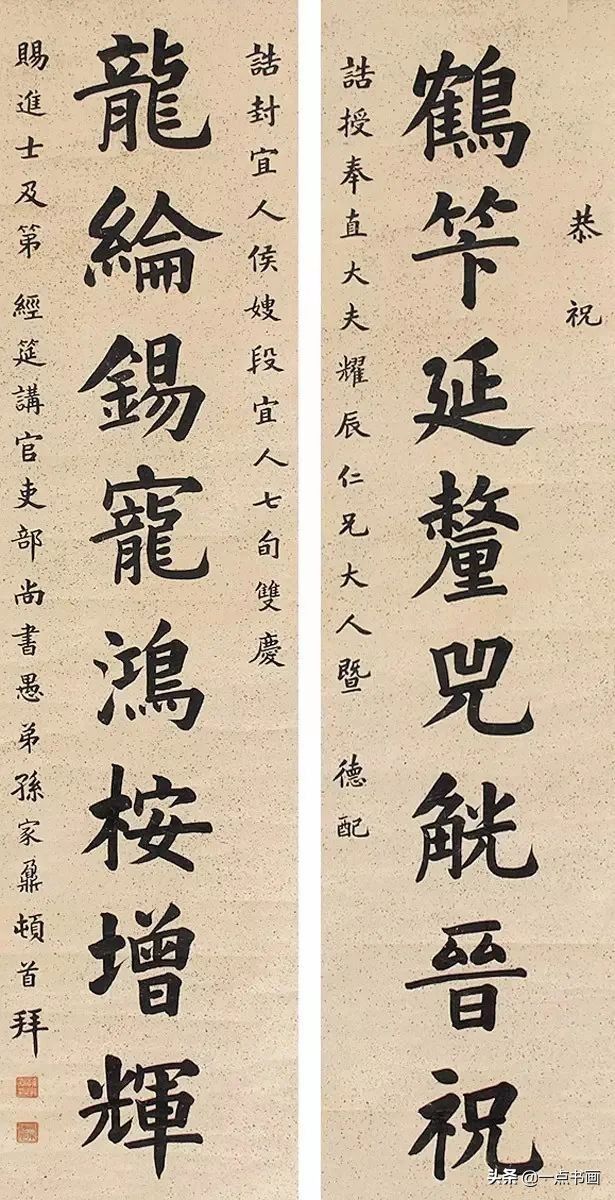 恭祝
鶴笇延釐兕觥晉祝
誥授奉直大夫耀辰仁兄大人暨 德配
誥封宜人侯嫂段宜人七旬雙慶
龍綸錫寵鴻桉增輝
賜進士及第 經筵講官吏部尚書愚弟孫家鼐頓首拜
头条 @一点书画